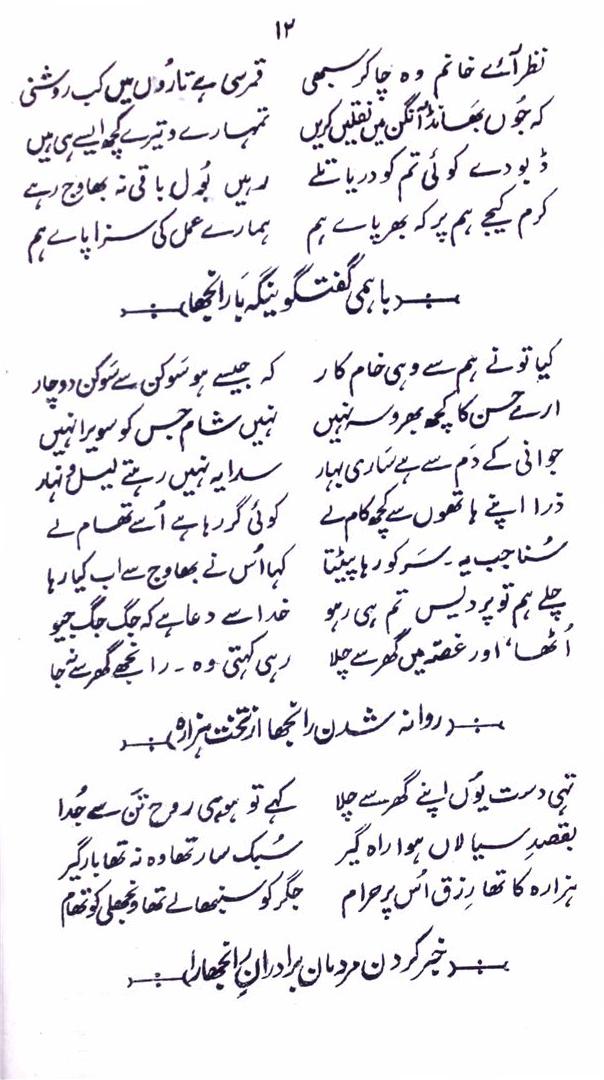 ۱۲
نظر آئے خانم وہ چاکر سبھی قمر سی ہے تاروں میں کب روشنی
کہ جوں بھانڈ آنگن میں نقلیں کریں تمہارے وتیرے کچھ ایسے ہی ہیں
ڈبو دے کوئی تم کو دریا تلے رہیں بُودل باقی نہ بھاوج رہے
کرم کیجے ہم پر کہ بھر پائے ہم ہمارے عمل کی سزا پائے ہم
باہمی گفتگو ینگہ با رانجھا
کیا تو نے ہم سے وہی خام کار کہ جیسے ہو سَوکن سے سَوکن دوچار
ارے حسن کا کچھ بھروسہ نہیں نہیں شام جس کو سویرا نہیں
جوانی کے دَم سے ہے ساری بہار سدا یہ نہیں رہتے لیل و نہار
ذرا اپنے ہاتھوں سے کچھ کام لے کوئی گر رہا ہے اُسے تھام لے
سُنا جب یہ ۔ سَر کو رہا پیٹتا کہا اُس نے بھاوج سے اب کیا رہا
چلے ہم تو پردیس تم ہی رہو خدا سے دعا ہے کہ جگ جگ جیو
اُٹھا، اور غصّہ میں گھر سے چلا رہی کہتی وہ ۔ رانجھے گھر سے نہ جا
روانہ شدن رانجھا از تخت ہزارہ
تہی دست یوں اپنے گھر سے چلا کہے تو ہوئی روح تن سے جُدا
بقصدِ سیالاں ہوا راہ گیر سُبک سار تھا وہ نہ تھا بار گیر
ہزارہ کا تھا رزق اُس پر حرام جگر کو سنبھالے تھا ونجھلی کو تھام
خبر کردن مردمان برادرانِ رانجھا را